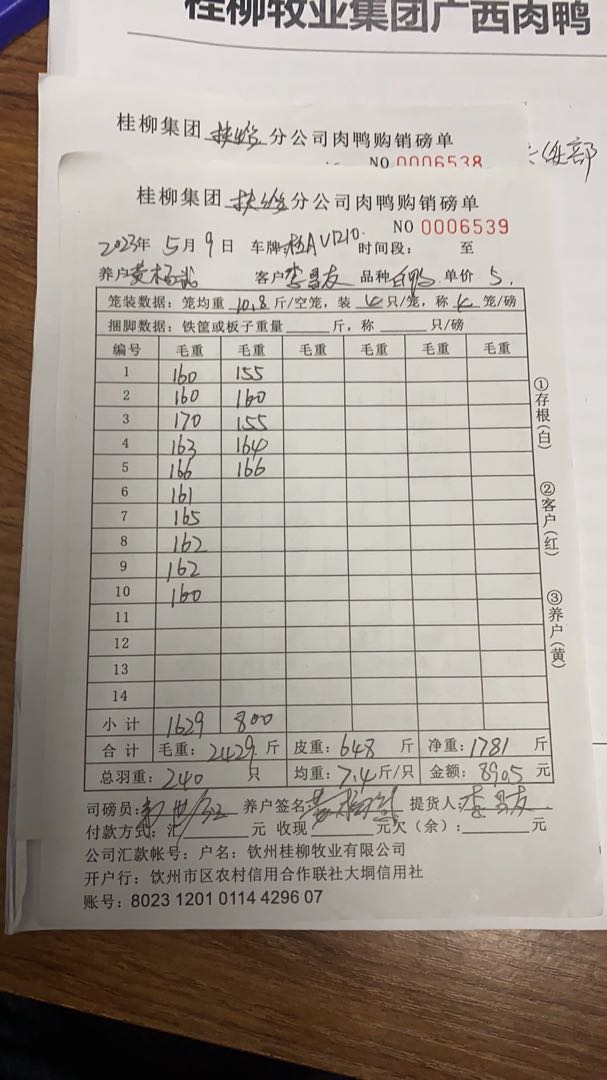 桂柳牧业集团广西肉鸭
桂柳集团 分公司肉鸭购销磅单
NO 0006538
桂柳集团 分公司肉鸭购销磅单
NO 0006539
2023年 5月9日 车牌: AV1210 时间段: 至
养户 黄 客户 李 友 品种 白鸭 单价 5.
笼装数据: 笼均重 10.8 斤/空笼, 装 4 只/笼, 称 4 笼/磅
捆脚数据: 铁筐或板子重量 斤, 称 只/磅
编号 毛重 毛重 毛重 毛重 毛重 毛重
1 160 155
2 160 160
3 170 155
4 163 164
5 166 166
6 161
7 165
8 162
9 162
10 160
11
12
13
14
小计 1629 800
合计 毛重: 2429 斤 皮重: 648 斤 净重: 1781 斤
总羽重: 240 只 均重: 7.4 斤/只 金额: 8905 元
司磅员: 养户签名: 提货人: 李 友
付款方式: 汇 元 收现 元欠(余): 元
公司汇款帐号: 户名: 钦州桂柳牧业有限公司
开户行: 钦州市区农村信用合作联社大垌信用社
账号: 8023 1201 0114 4296 07
①存根(白)
②客户(红)
③养户(黄)